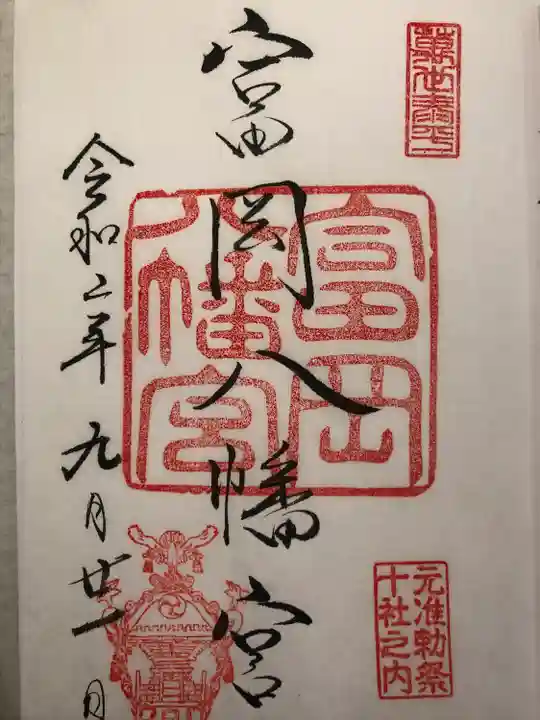 萬世泰平
富岡八幡宮
富岡
八幡宮
元准勅祭
十社之内
令和二年九月廿一日